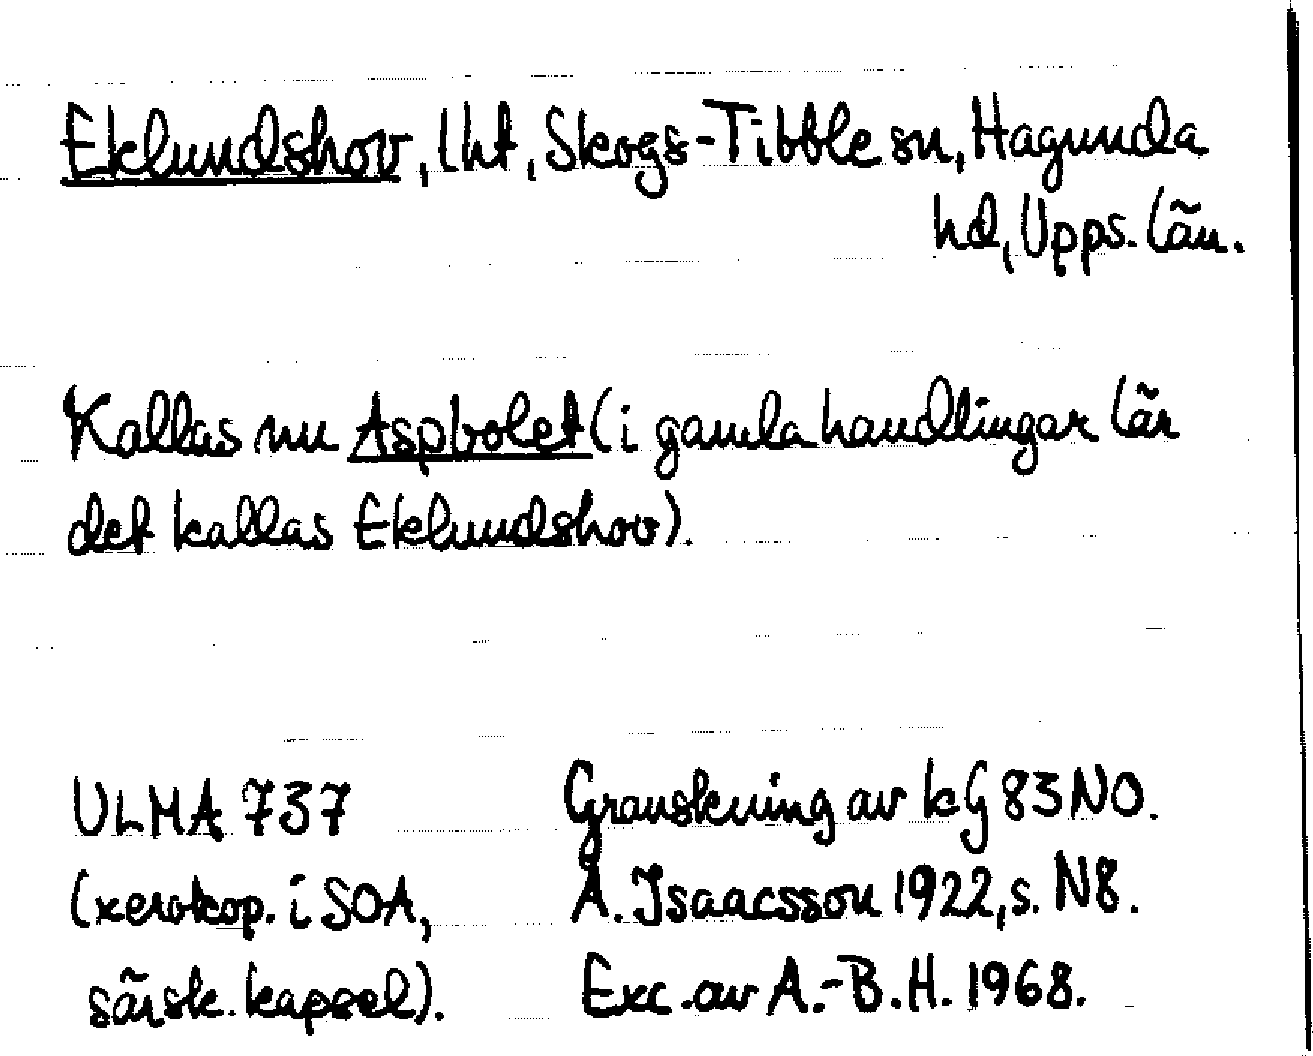 Eklundshov, lht, Skogs-Tibble sn, Hagunda
hd, Upps. län.
Kallas nu Aspbolet (i gamla handlingar lär
det kallas Eklundshov).
ULMA 737
(xerokop. i SOA,
särsk. kapsel).
Granskning av kG 83 NO.
A. Isaacsson 1922, s. N8.
Exc. av A.-B. H. 1968.